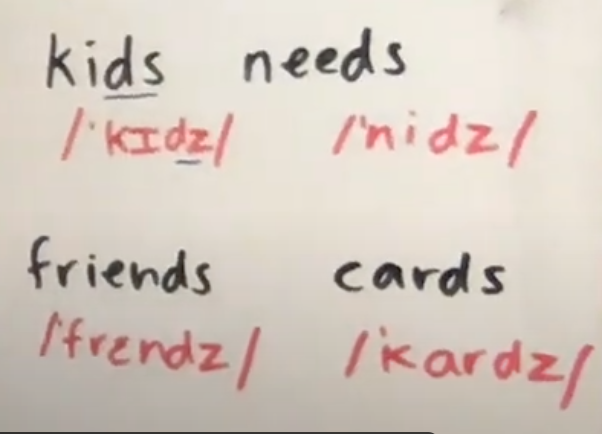 kids needs
/'kɪdz/ /'nidz/
friends cards
/'frɛndz/ /'kardz/